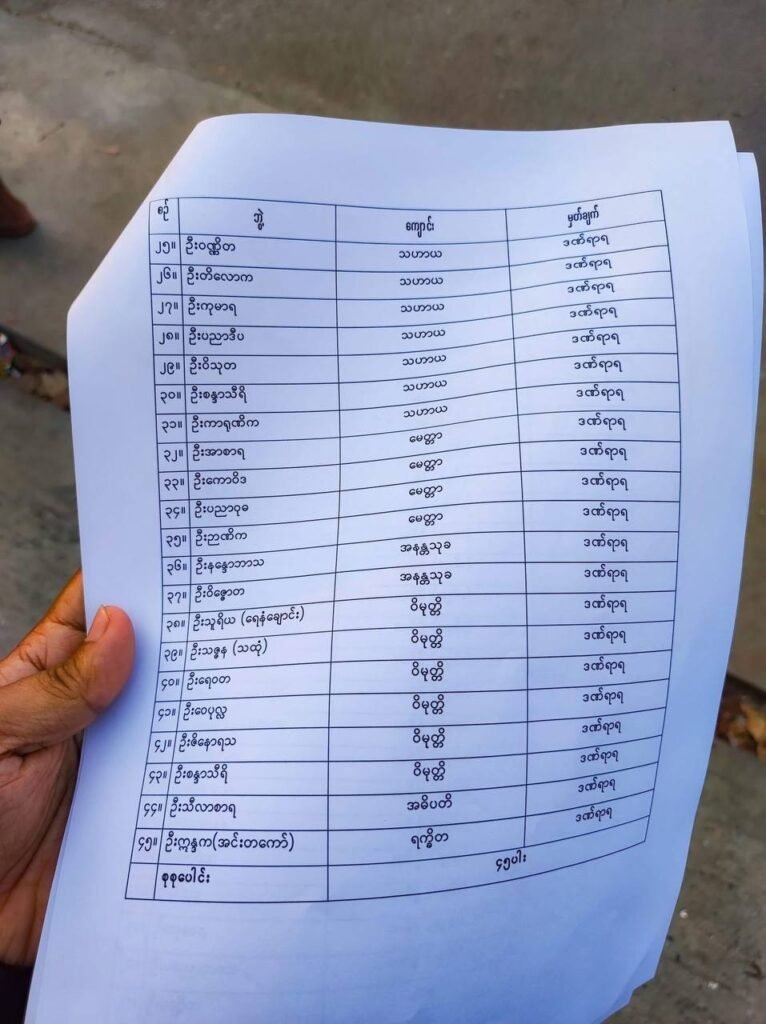 စဉ် ဘွဲ့ ကျောင်း မှတ်ချက်
၂၅။ ဦးဝဏ္ဏိတ သဟာယ ဒဏ်ရာရ
၂၆။ ဦးတိလောက သဟာယ ဒဏ်ရာရ
၂၇။ ဦးကုမာရ သဟာယ ဒဏ်ရာရ
၂၈။ ဦးပညာဒီပ သဟာယ ဒဏ်ရာရ
၂၉။ ဦးဝိသုတ သဟာယ ဒဏ်ရာရ
၃၀။ ဦးစန္ဒာသီရိ သဟာယ ဒဏ်ရာရ
၃၁။ ဦးကာရုဏိက သဟာယ ဒဏ်ရာရ
၃၂။ ဦးအာစာရ မေတ္တာ ဒဏ်ရာရ
၃၃။ ဦးကောဝိဒ မေတ္တာ ဒဏ်ရာရ
၃၄။ ဦးပညာဝုဓ မေတ္တာ ဒဏ်ရာရ
၃၅။ ဦးဉာဏိက မေတ္တာ ဒဏ်ရာရ
၃၆။ ဦးနန္ဒောဘာသ အနန္တသုခ ဒဏ်ရာရ
၃၇။ ဦးဝိဇ္ဇောတ အနန္တသုခ ဒဏ်ရာရ
၃၈။ ဦးသူရိယ (ရေနံချောင်း) ဝိမုတ္တိ ဒဏ်ရာရ
၃၉။ ဦးသဇ္ဇန (သထုံ) ဝိမုတ္တိ ဒဏ်ရာရ
၄၀။ ဦးရေဝတ ဝိမုတ္တိ ဒဏ်ရာရ
၄၁။ ဦးဝေပုလ္လ ဝိမုတ္တိ ဒဏ်ရာရ
၄၂။ ဦးဇိနောရသ ဝိမုတ္တိ ဒဏ်ရာရ
၄၃။ ဦးစန္ဒာသီရိ ဝိမုတ္တိ ဒဏ်ရာရ
၄၄။ ဦးသီလာစာရ အဓိပတိ ဒဏ်ရာရ
၄၅။ ဦးဣန္ဒက(အင်းတကော်) ရက္ခိတ ဒဏ်ရာရ
စုစုပေါင်း ၄၅ပါး